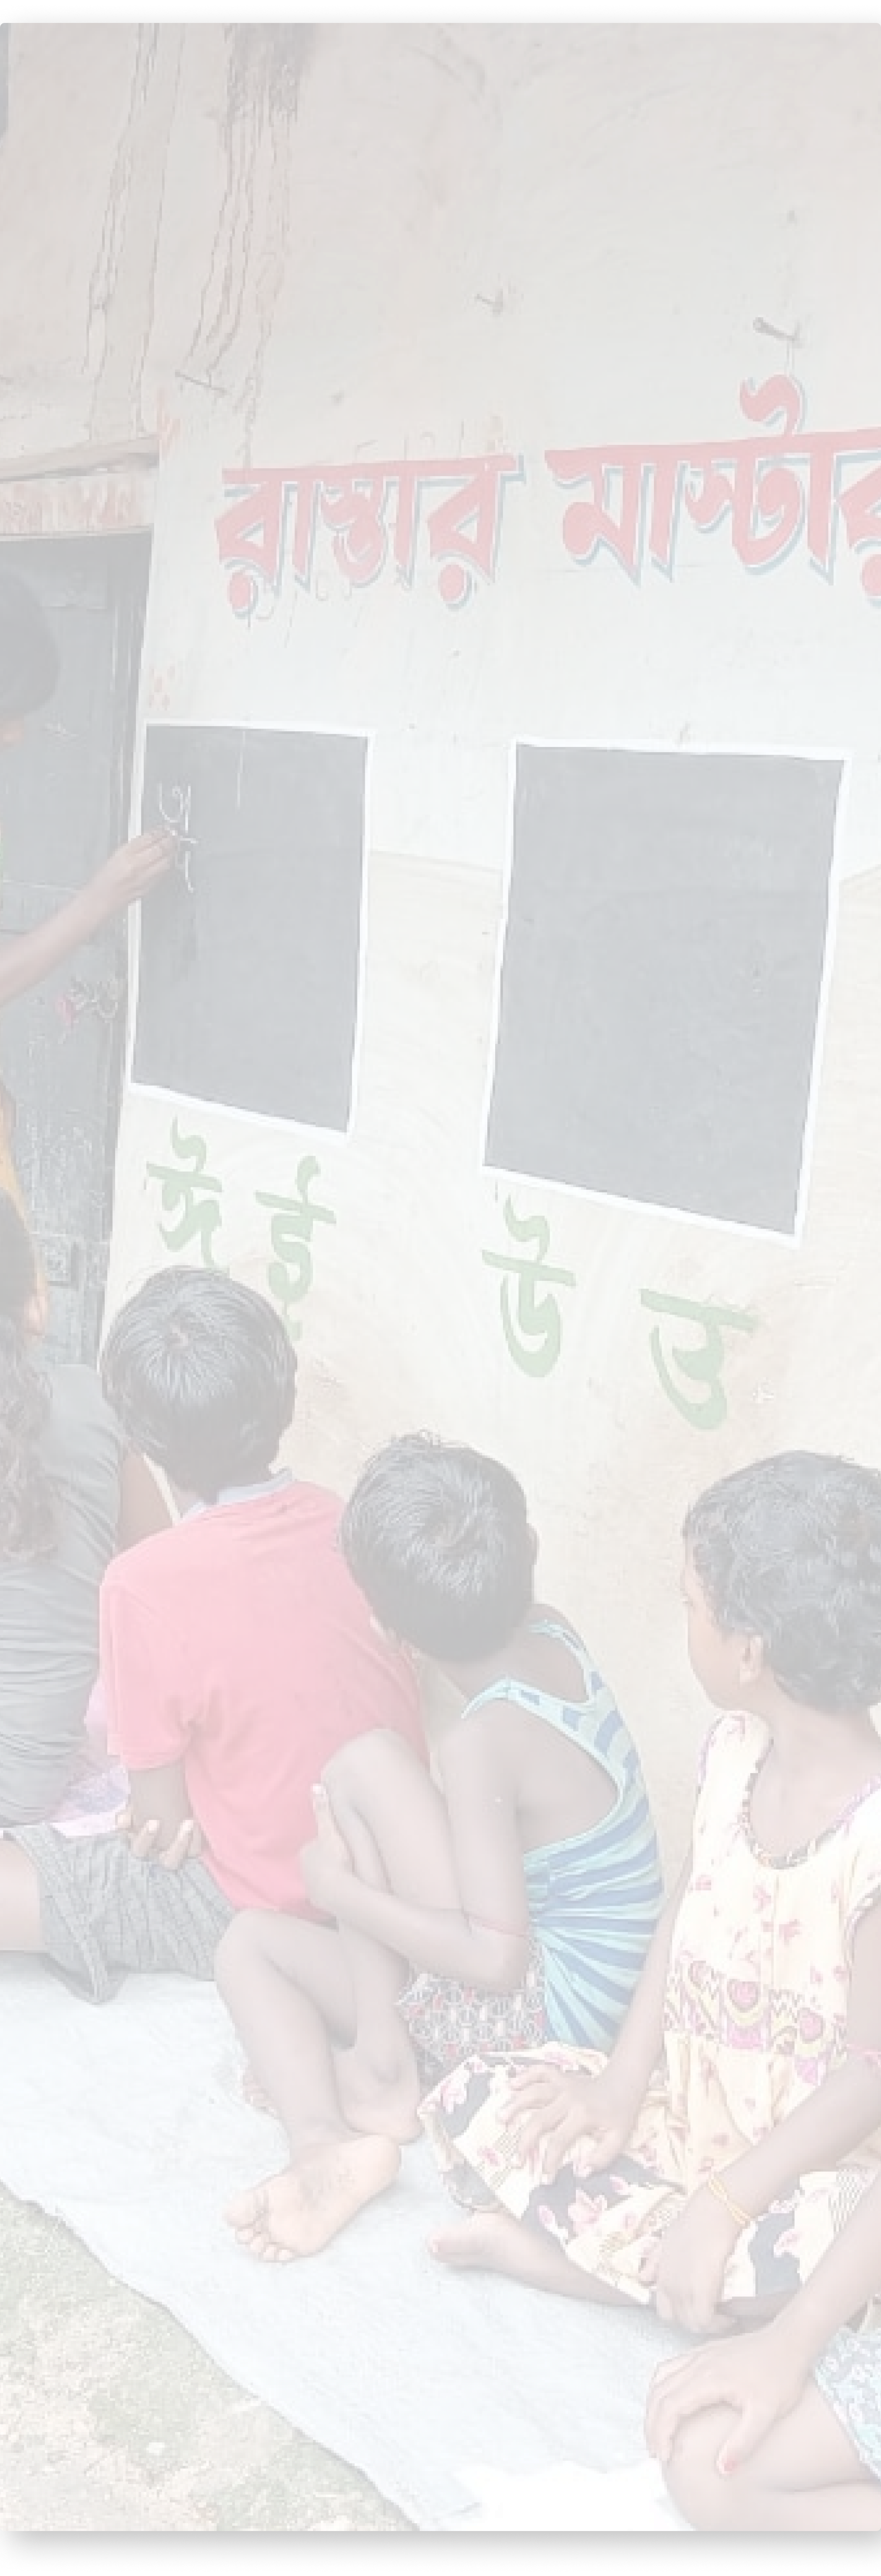 রাস্তার মাস্টার
অ
ঈ ই উ ত